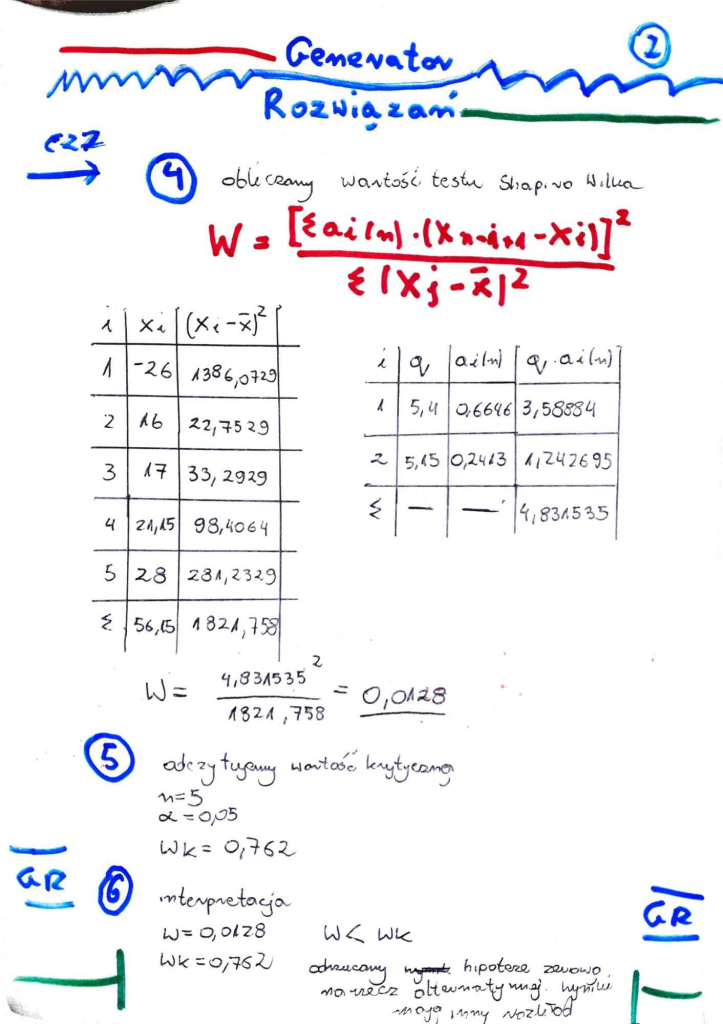 Generator
2
Rozwiązań
CZ7
4 obliczamy wartość testu Shapiro Wilka
W = [Σ ai(n) · (Xn-i+1 - Xi)]²
Σ (Xj - x̄)²
i xi (xi - x̄)²
1 -26 1386,0729
2 16 22,7529
3 17 33,2929
4 21,15 98,4064
5 28 281,2329
Σ 56,15 1821,758
i q ai(n) q · ai(n)
1 5,4 0,6646 3,58884
2 5,15 0,2413 1,242695
Σ — — 4,831535
W = 4,831535² = 0,0128
1821,758
5 odczytujemy wartość krytyczną
n=5
α = 0,05
Wk = 0,762
GR
6 interpretacja
W = 0,0128 W < Wk
Wk = 0,762 odrzucamy hipotezę zerową
na rzecz alternatywnej. wyniki
mają inny rozkład
GR